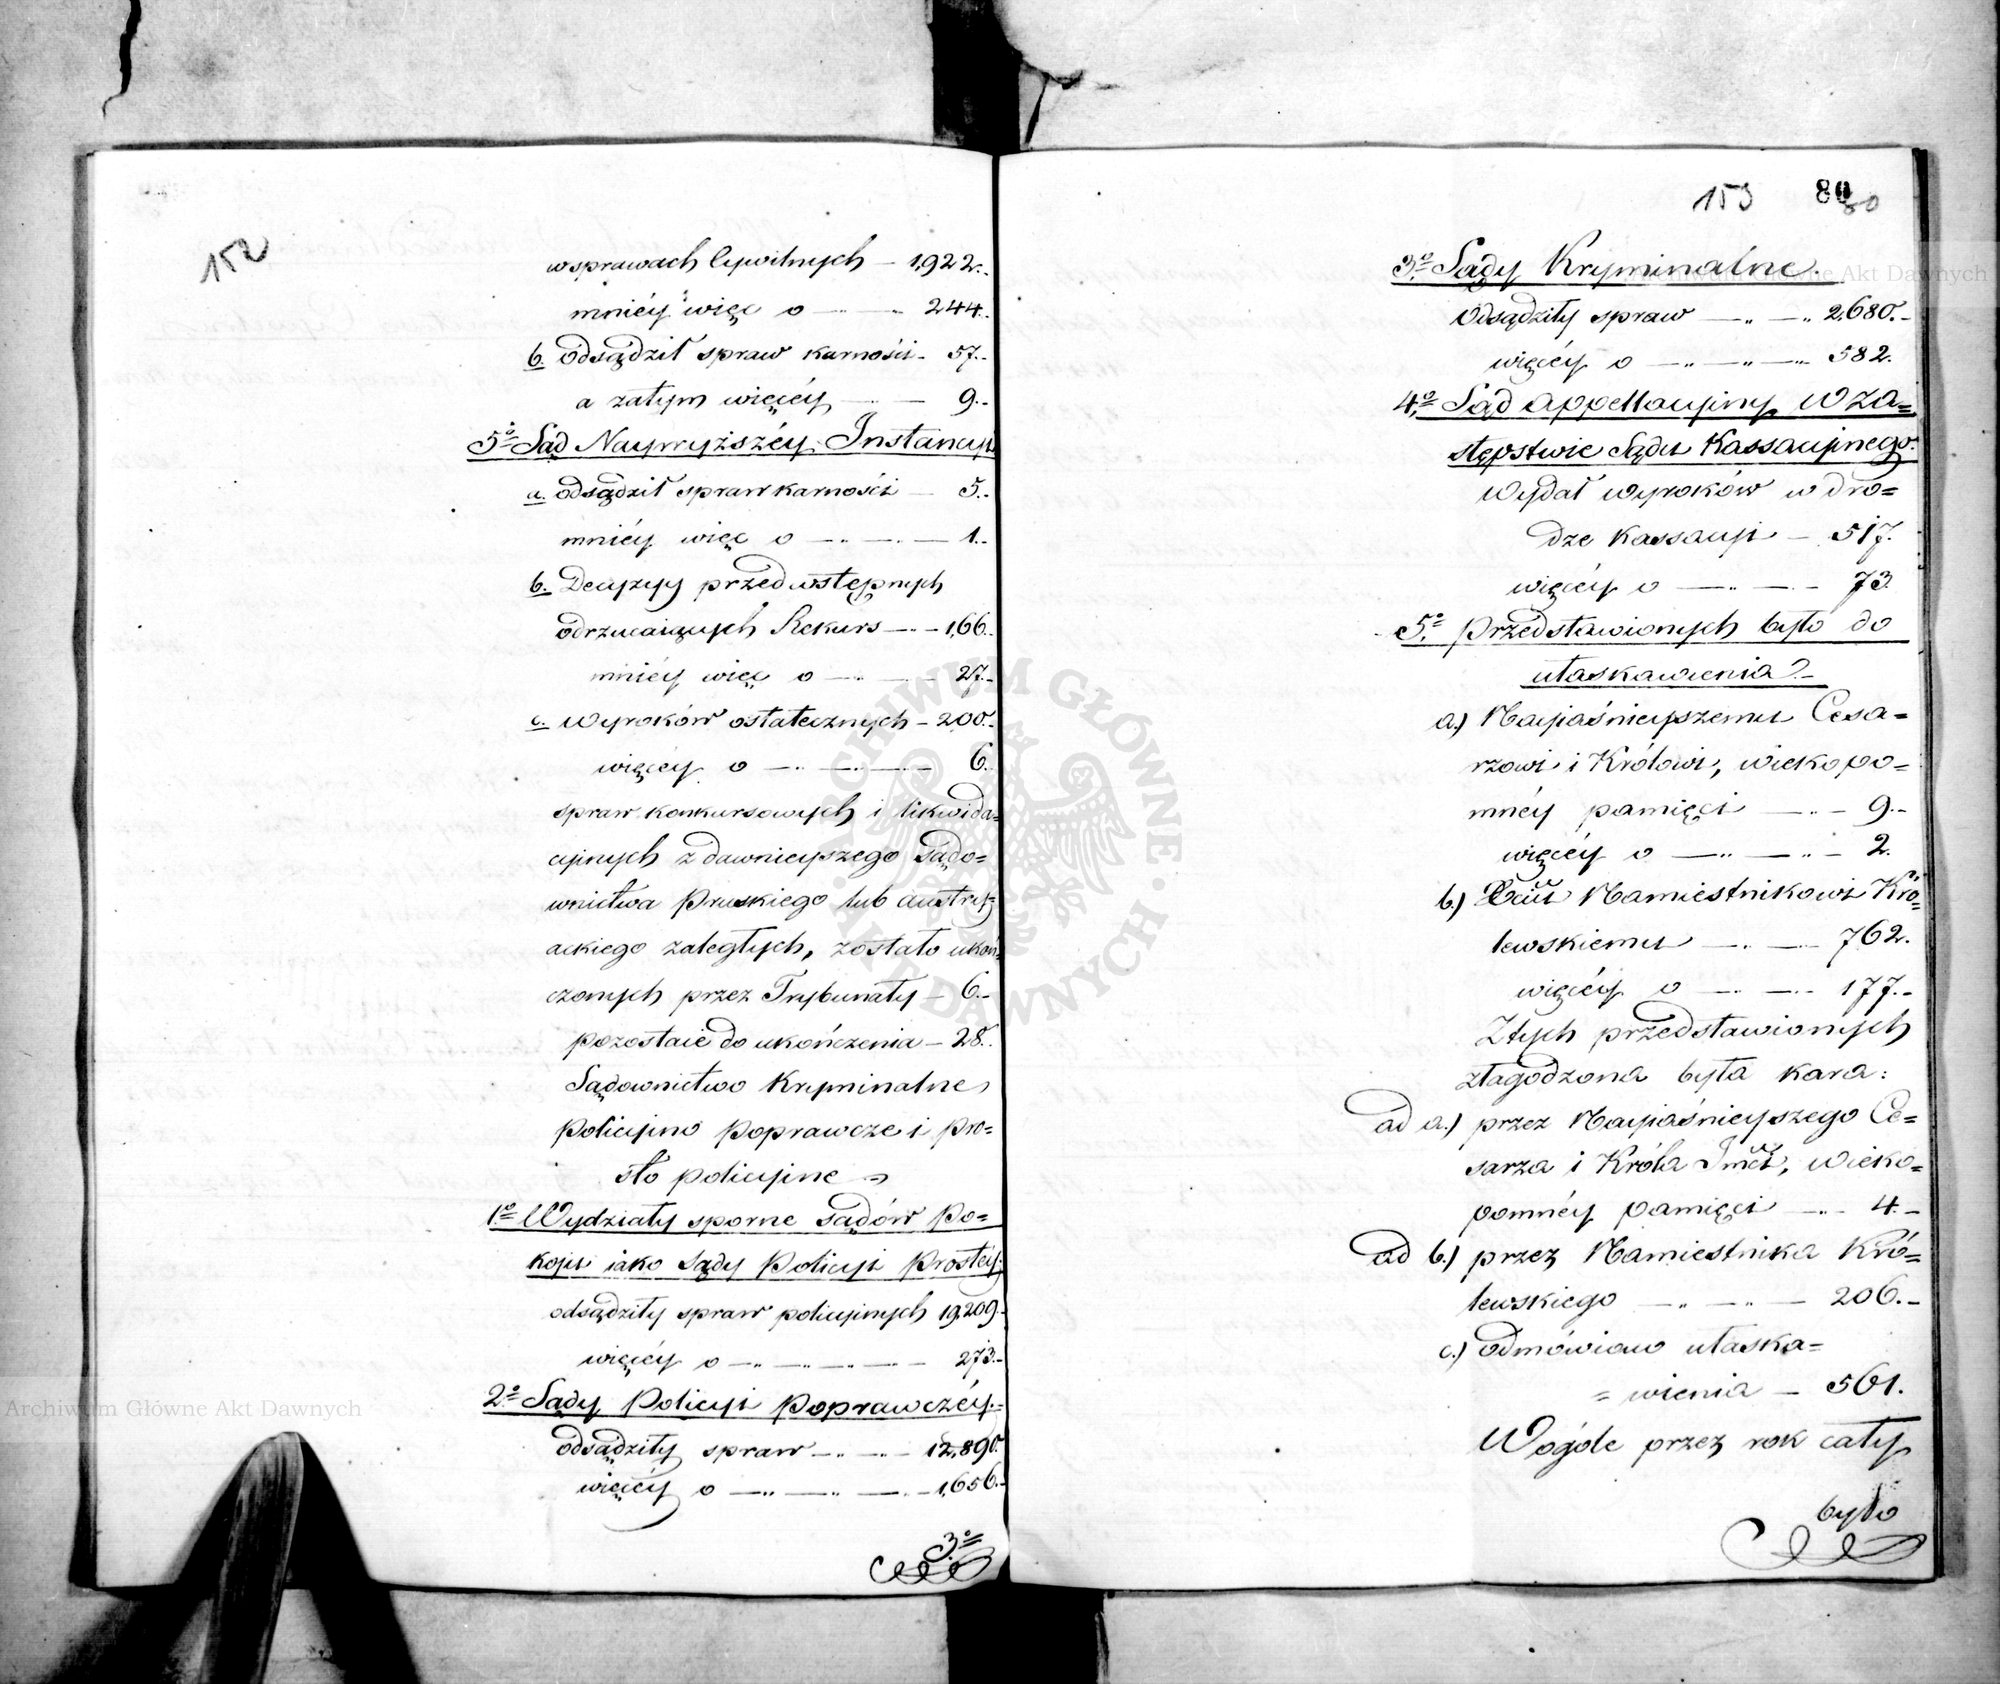 152
w sprawach Cywilnych — 1,922.-
mniéy więc o — „ — „ 244.-
b. odsądził spraw karności - 57.-
a zatym więcéy — — 9.-
5º Sąd Naywyższéy Instancyi
a. odsądził spraw karności — 5.-
mniéy więc o — „ — „ — 1.-
b. Decyzyy przedwstępnych
odrzucaiących Rekurs — „ — 166.-
mniéy więc o — „ — „ — 27.-
c. Wyroków ostatecznych — 200.-
więcéy o — „ — „ — „ — 6.
spraw konkursowych i likwida=
cyinych z dawnieyszego Sądo=
wnictwa Pruskiego lub Austry=
ackiego zaległych, zostało ukoń=
czonych przez Trybunały — 6.-
pozostaie do ukończenia — 28.
Sądownictwo Kryminalne,
Policyino poprawcze i pro=
sto policyine =
1º Wydziały sporne Sądów Po=
koju iako Sądy Policyi Prostéy
odsądziły spraw policyinych 19,209.-
więcéy o — „ — „ — „ — 273.-
2º Sądy Policyi Poprawczéy.=
odsądziły spraw — „ — „ — 12,890.
więcéy o — „ — „ — „ — 1,656.-
3º
153 80
80
3º Sądy Kryminalne.
Odsądziły spraw — „ — „ 2,680.-
więcéy o — „ — „ — „ 582.
4º Sąd Appellacyiny w za=
stępstwie Sądu Kassacyinego.
Wydał wyroków w dro=
dze kassacyi — 517.
więcéy o — „ — „ — 73.
5º Przedstawionych było do
ułaskawienia.-
a.) Nayiaśnieyszemu Cesa=
rzowi i Królowi, wiekopo=
mnéy pamięci — „ — 9.-
więcéy o — „ — „ — 2.
b.) Xciu Namiestnikowi Kró=
lewskiemu — „ — 762.
więcéy o — „ — „ 177.-
Z tych przedstawionych
złagodzona była kara:
ad a.) przez Nayiaśnieyszego Ce=
sarza i Króla Jmci, wieko=
pomnéy pamięci — „ — 4.-
ad b.) przez Namiestnika Kró=
lewskiego — „ — „ — 206.-
c.) odmówiono ułaska=
= wienia — 561.
Wogóle przez rok cały
było
Archiwum Główne Akt Dawnych
Archiwum Główne Akt Dawnych
ARCHIWUM GŁÓWNE AKT DAWNYCH